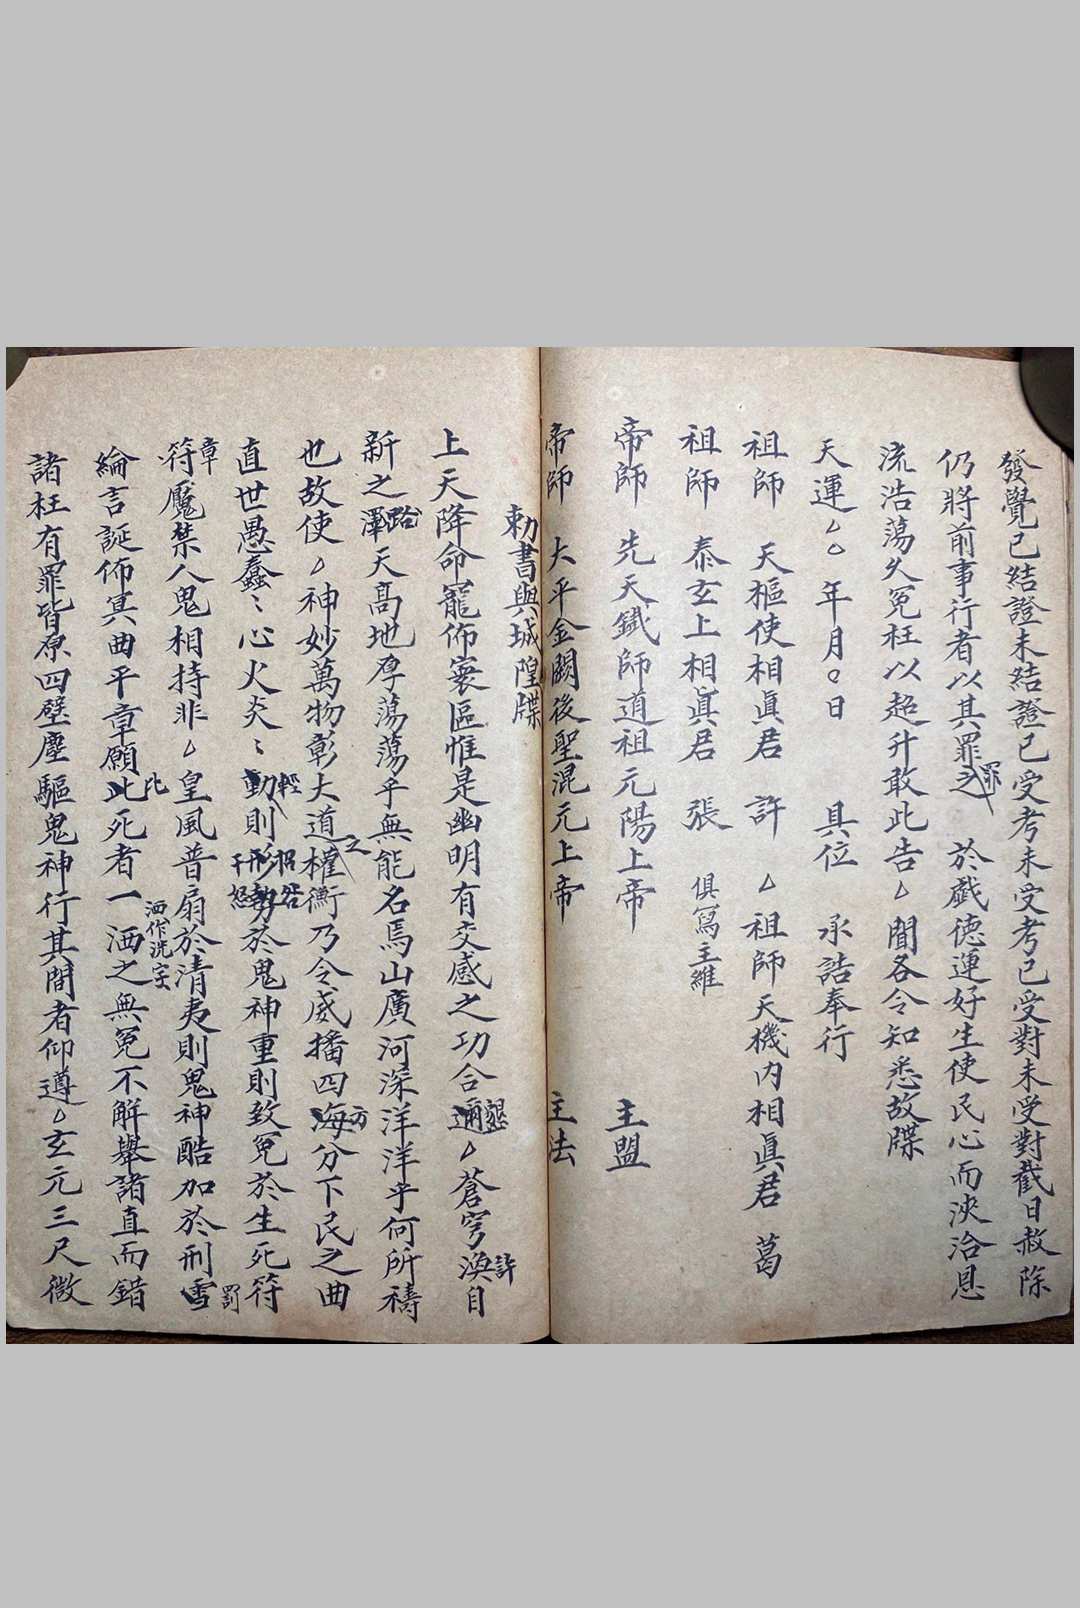 發覺已結證未結證已受考未受考已受對未受對截日赦除
仍將前事行者以其罪之罪 於戲德運好生使民心而浹洽恩
流浩蕩久冤枉以超升敢此告△聞各令知悉故牒
天運△○年月○日 具位 承誥奉行
祖師 天樞使相眞君 許 △祖師天機內相眞君 葛
祖師 泰玄上相眞君 張 俱寫主維
帝師 先天鐵師道祖元陽上帝 主盟
帝師 大平金闕後聖混元上帝 主法
勅書與城隍牒
上天降命寵佈寰區惟是幽明有交感之功合懇△蒼穹渙許自
新之路澤天高地厚蕩蕩乎無能名焉山廣河深洋洋乎何所禱
也故使△神妙萬物彰大道之權衡乃令威播四海方分下民之曲
直世愚蠢〻心火炎〻動輕則形勢招咎干怒於鬼神重則致冤於生死符
章符魘禁人鬼相持非△皇風普扇於清夷則鬼神酷加於刑雪罰
綸言誕佈冥曲平章願此比死者一洒洒作洗字之無冤不解舉諸直而錯
諸枉有罪皆原四壁塵驅鬼神行其間者仰遵△玄元三尺微